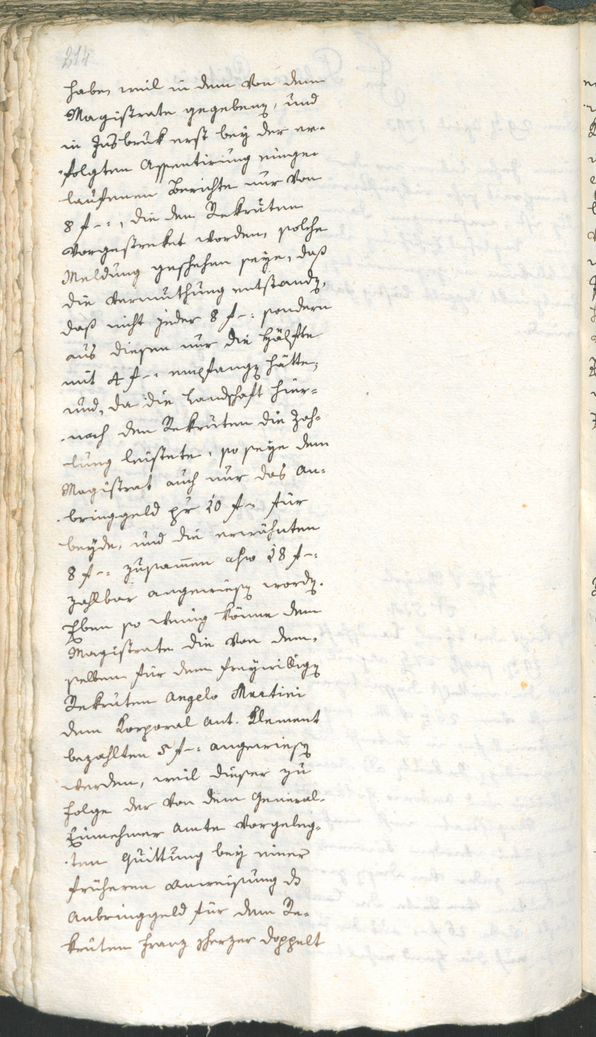 214
haben, weil in dem von dem
Magistrate gegebenen, und
in Insbruk erst bey der er-
folgten Assentirung einge-
laufenen Berichte nur von
8 f -: , die den Rekruten
vorgestreket worden, solche
Meldung geschehen seye, daß
die Vermuthung entstanden,
daß nicht jeder 8 f -: sondern
aus diesen nur die Hälfte
mit 4 f -: empfangen hätte,
und, da die Landschaft hier-
nach den Rekruten die Zah-
lung leistete, so seye dem
Magistrat auch nur das An-
bringgeld pr 10 f - für
beyde, und die erwähnten
8 f -: zusammen also 18 f -:
zahlbar angewiesen worden.
Eben so wenig könne dem
Magistrate die von dem-
selben für dem freywilligen
Rekruten Angelo Martini
dem Korporal Ant. Klement
bezahlten 5 f -: angewiesen
werden, weil dieser zu
Folge der von dem General-
Einnehmer Amte vorgeleg-
ten Quittung bey einer
früheren Anweisung das
Anbringgeld für dem Re-
kruten Franz Herzer doppelt